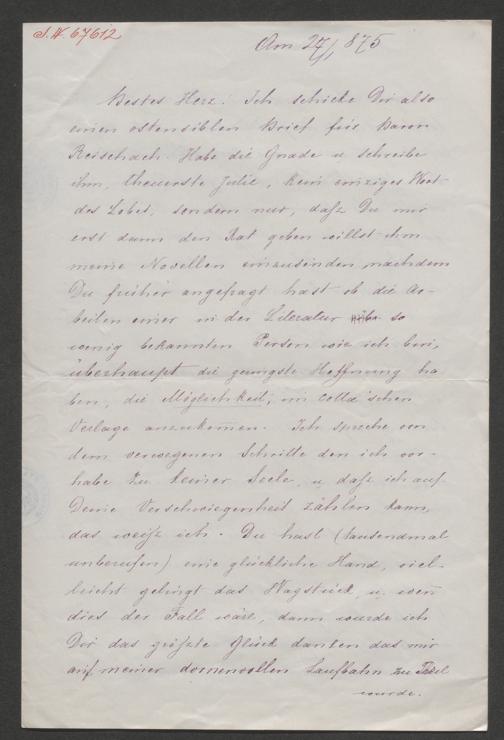 J.N. 67612
Am 27/1 875
Bestes Herz! Ich schicke Dir also
einen ostensiblen Brief für Baron
Reischach. Habe die Gnade u schreibe
ihm, theuerste Julie, kein einziges Wort
des Lobes, sondern nur, daß Du mir
erst dann den Rat geben willst ihm
meine Novellen einzusenden, nachdem
Du früher angefragt hast ob die Ar-
beiten einer in der Literatur so
wenig bekannten Person wie ich bin,
überhaupt die geringste Hoffnung ha
ben, die Möglichkeit, im Cotta'schen
Verlage anzukommen. Ich spreche von
dem verwegenen Schritte den ich vor-
habe zu keiner Seele, u daß ich auf
Deine Verschwiegenheit zählen kann,
das weiß ich. Du hast (tausendmal
unberufen) eine glückliche Hand, viel-
leicht gelingt das Wagstück, u. wen
dies der Fall wäre, dann würde ich
Dir das größte Glück danken das mir
auf meiner dornenvollen Laufbahn zu Teil
wurde.